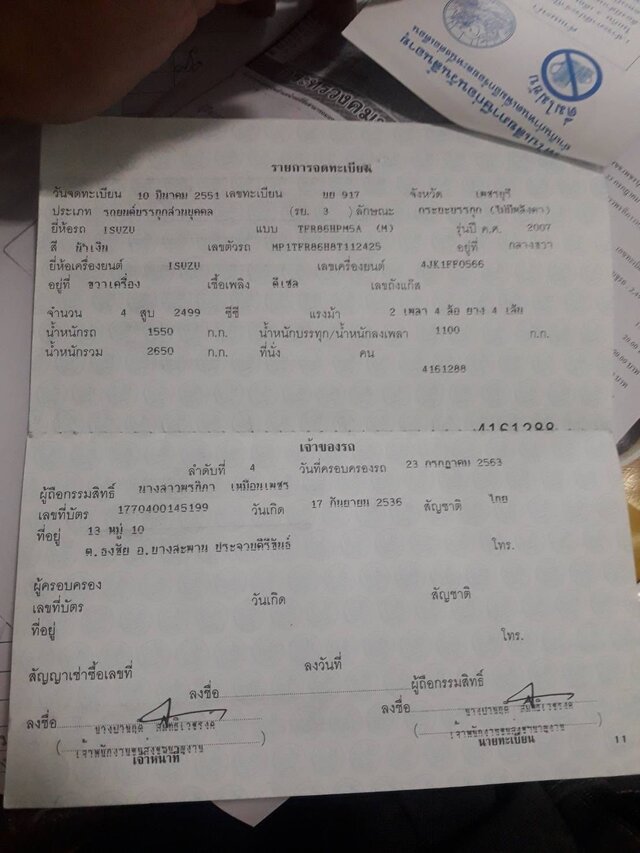 รายการจดทะเบียน
วันจดทะเบียน 10 มีนาคม 2551 เลขทะเบียน บย 917 จังหวัด เพชรบุรี
ประเภท รถยนต์บรรทุกส่วนบุคคล (รย. 3 ) ลักษณะ กระบะบรรทุก (ไม่มีหลังคา)
ยี่ห้อรถ ISUZU แบบ TFR86HPM5A (M) รุ่นปี ค.ศ. 2007
สี น้ำเงิน เลขตัวรถ MP1TFR86H8T112425 อยู่ที่ กลางขวา
ยี่ห้อเครื่องยนต์ ISUZU เลขเครื่องยนต์ 4JK1FF0566
อยู่ที่ ขวาเครื่อง เชื้อเพลิง ดีเซล เลขถังแก๊ส
จำนวน 4 สูบ 2499 ซีซี แรงม้า 2 เพลา 4 ล้อ ยาง 4 เส้น
น้ำหนักรถ 1550 ก.ก. น้ำหนักบรรทุก/น้ำหนักลงเพลา 1100 ก.ก.
น้ำหนักรวม 2650 ก.ก. ที่นั่ง คน
4161288
4161288
เจ้าของรถ
ลำดับที่ 4 วันที่ครอบครองรถ 23 กรกฎาคม 2563
ผู้ถือกรรมสิทธิ์ นางสาวพรทิภา เหมือนเพชร
เลขที่บัตร 1770400145199 วันเกิด 17 กันยายน 2536 สัญชาติ ไทย
ที่อยู่ 13 หมู่ 10
ต.ธงชัย อ.บางสะพาน ประจวบคีรีขันธ์ โทร.
ผู้ครอบครอง
เลขที่บัตร วันเกิด สัญชาติ
ที่อยู่ โทร.
สัญญาเช่าซื้อเลขที่ ลงวันที่
ลงชื่อ ผู้ถือกรรมสิทธิ์
ลงชื่อ ลงชื่อ
เจ้าหน้าที่ นายทะเบียน
11